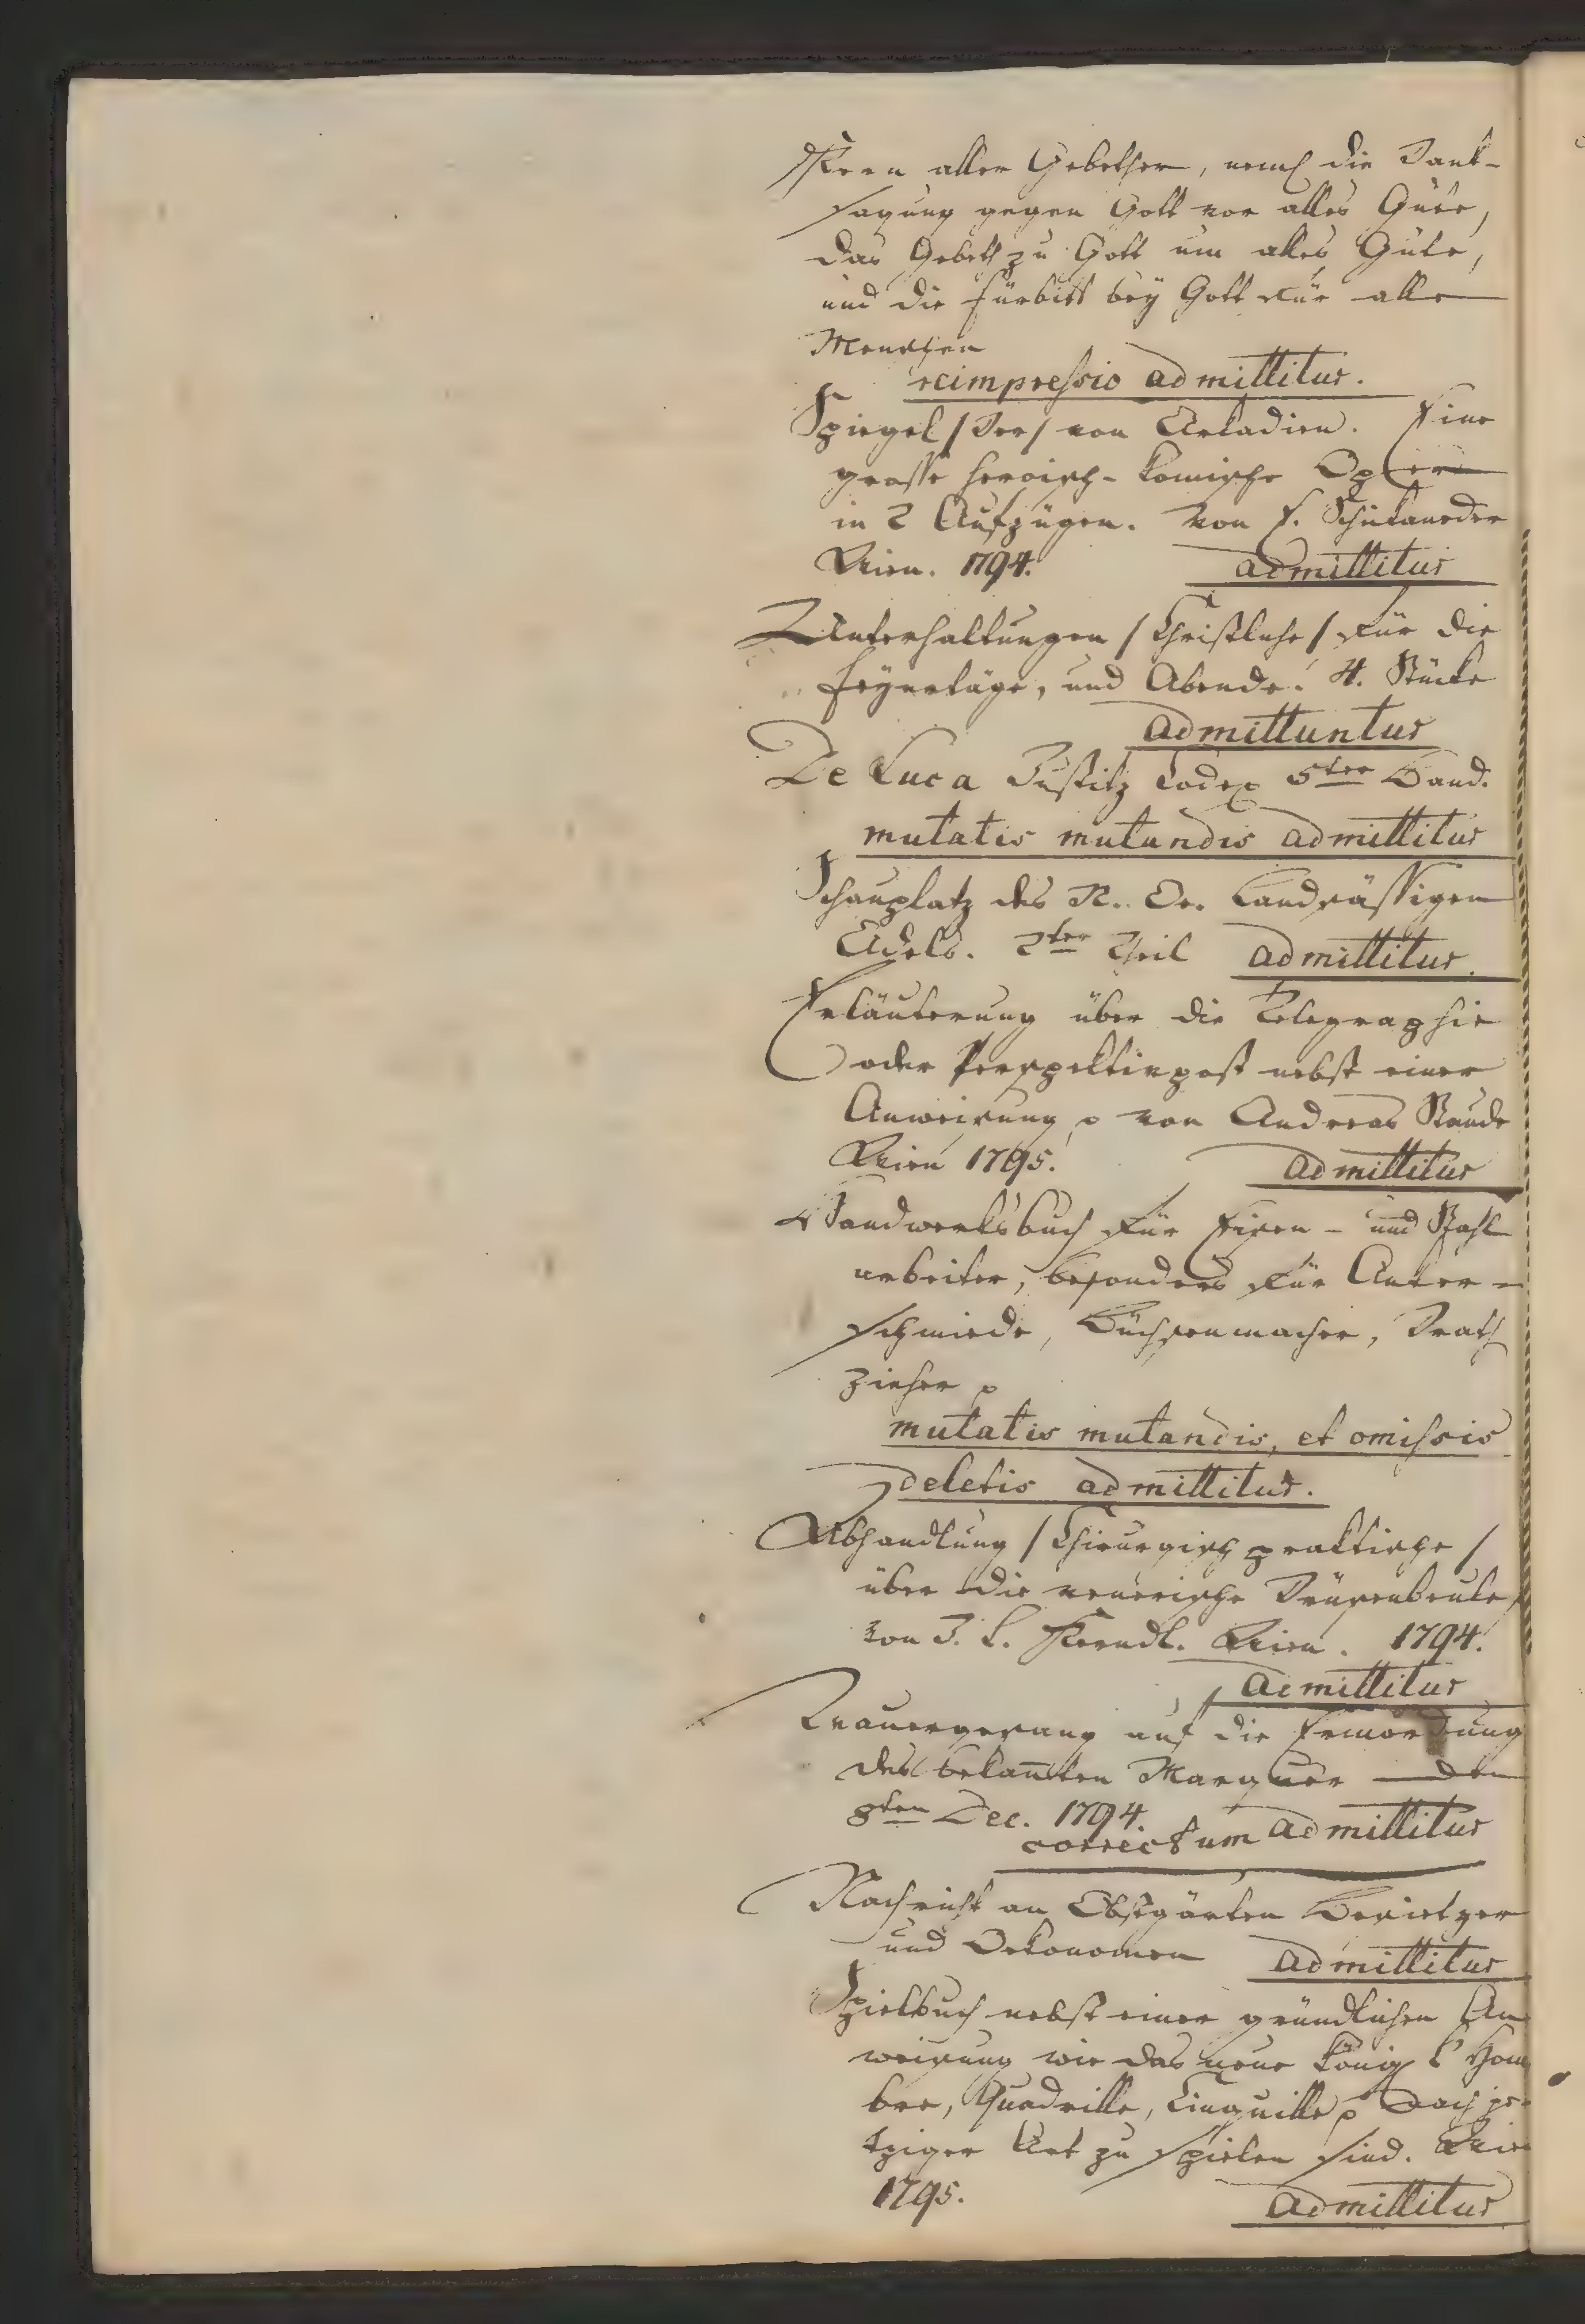 Kern aller Gebether, neml die Dank-
sagung gegen Gott vor alles Gute,
das Gebeth zu Gott um alles Gute,
und die fürbitt bey Gott für alle
Menschen
reimpressio admittitur.
Spiegel /der/ von Arkadien. Eine
grosse heroisch-komische Oper
in 2 Aufzügen. von E. Schikaneder
Wien. 1794. admittitur
Unterhaltungen /Christliche/ für die
feyertäge, und Abende. 4. Stücke
admittuntur
De Luca Justitz Codex 5ter Band.
mutatis mutandis admittitur
Schauplatz des N. Oe. Landsässigen
Adels. 2ter Theil admittitur.
Erläuterung über die Telegraphie
oder Perspektivpost nebst einer
Anweisung von Andreas Staude
Wien 1795. admittitur
Handwerksbuch für Eisen- und Stahl
arbeiter, besonders für Anker-
schmiede, Büchsenmacher, Drath
zieher
mutatis mutandis, et omissis
deletis admittitur.
Abhandlung /Chirurgisch praktische/
über die venerische Drüsenbeule,
von J. L. Kerndl. Wien. 1794.
admittitur
Trauergesang auf die Ermordung
des bekannten Marquer den
8ten Dec. 1794.
correctum admittitur
Nachricht an Obstgärten Besietzer
und Oekonomen admittitur
Spielbuch nebst einer gründlichen An
weisung wie das neue König l'Hom
bre, Quadrille, Cinquille nach je-
tziger Art zu spielen sind. Wien
1795. admittitur